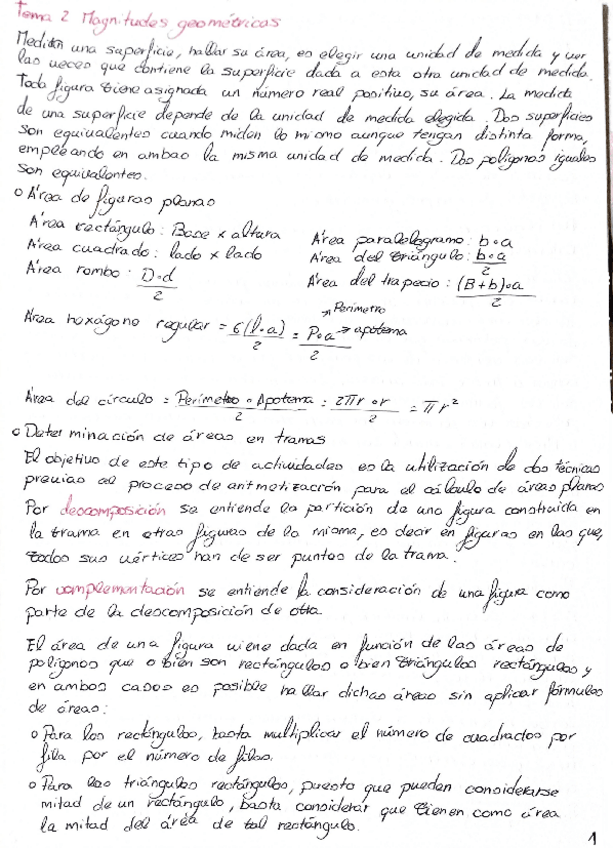 Tema 2 Magnitudes geométricas
Medir una superficie, hallar su área, es elegir una unidad de medida y ver
las veces que contiene la superficie dada a esta otra unidad de medida.
Toda figura tiene asignada un número real positivo, su área. La medida
de una superficie depende de la unidad de medida elegida. Dos superficies
son equivalentes cuando miden lo mismo aunque tengan distinta forma,
empleando en ambas la misma unidad de medida. Dos polígonos iguales
son equivalentes.
o Área de figuras planas
Área rectángulo: Base x altura
Área paralelogramo: b·a
Área cuadrado: lado x lado
Área del triángulo: b·a/2
Área rombo: D·d/2
Área del trapecio: (B+b)·a/2
Área hexágono regular = 6(l·a)/2 = P·a/2 → Perimetro → apotema
Área del círculo = Perimetro · Apotema/2 = 2πr·r/2 = πr²
o Determinación de áreas en tramas
El objetivo de este tipo de actividades es la utilización de dos técnicas
previas al proceso de aritmetización para el cálculo de áreas planas
Por descomposición se entiende la partición de una figura construida en
la trama en otras figuras de la misma, es decir en figuras en las que,
todos sus vértices han de ser puntos de la trama.
Por complementación se entiende la consideración de una figura como
parte de la descomposición de otra.
El área de una figura viene dada en función de las áreas de
polígonos que o bien son rectángulos o bien triángulos rectángulos y
en ambos casos es posible hallar dichas áreas sin aplicar fórmulas
de áreas:
o Para los rectángulos, basta multiplicar el número de cuadrados por
fila por el número de filas.
o Para los triángulos rectángulos, puesto que pueden considerarse
mitad de un rectángulo, basta considerar que tienen como área
la mitad del área de tal rectángulo.
1